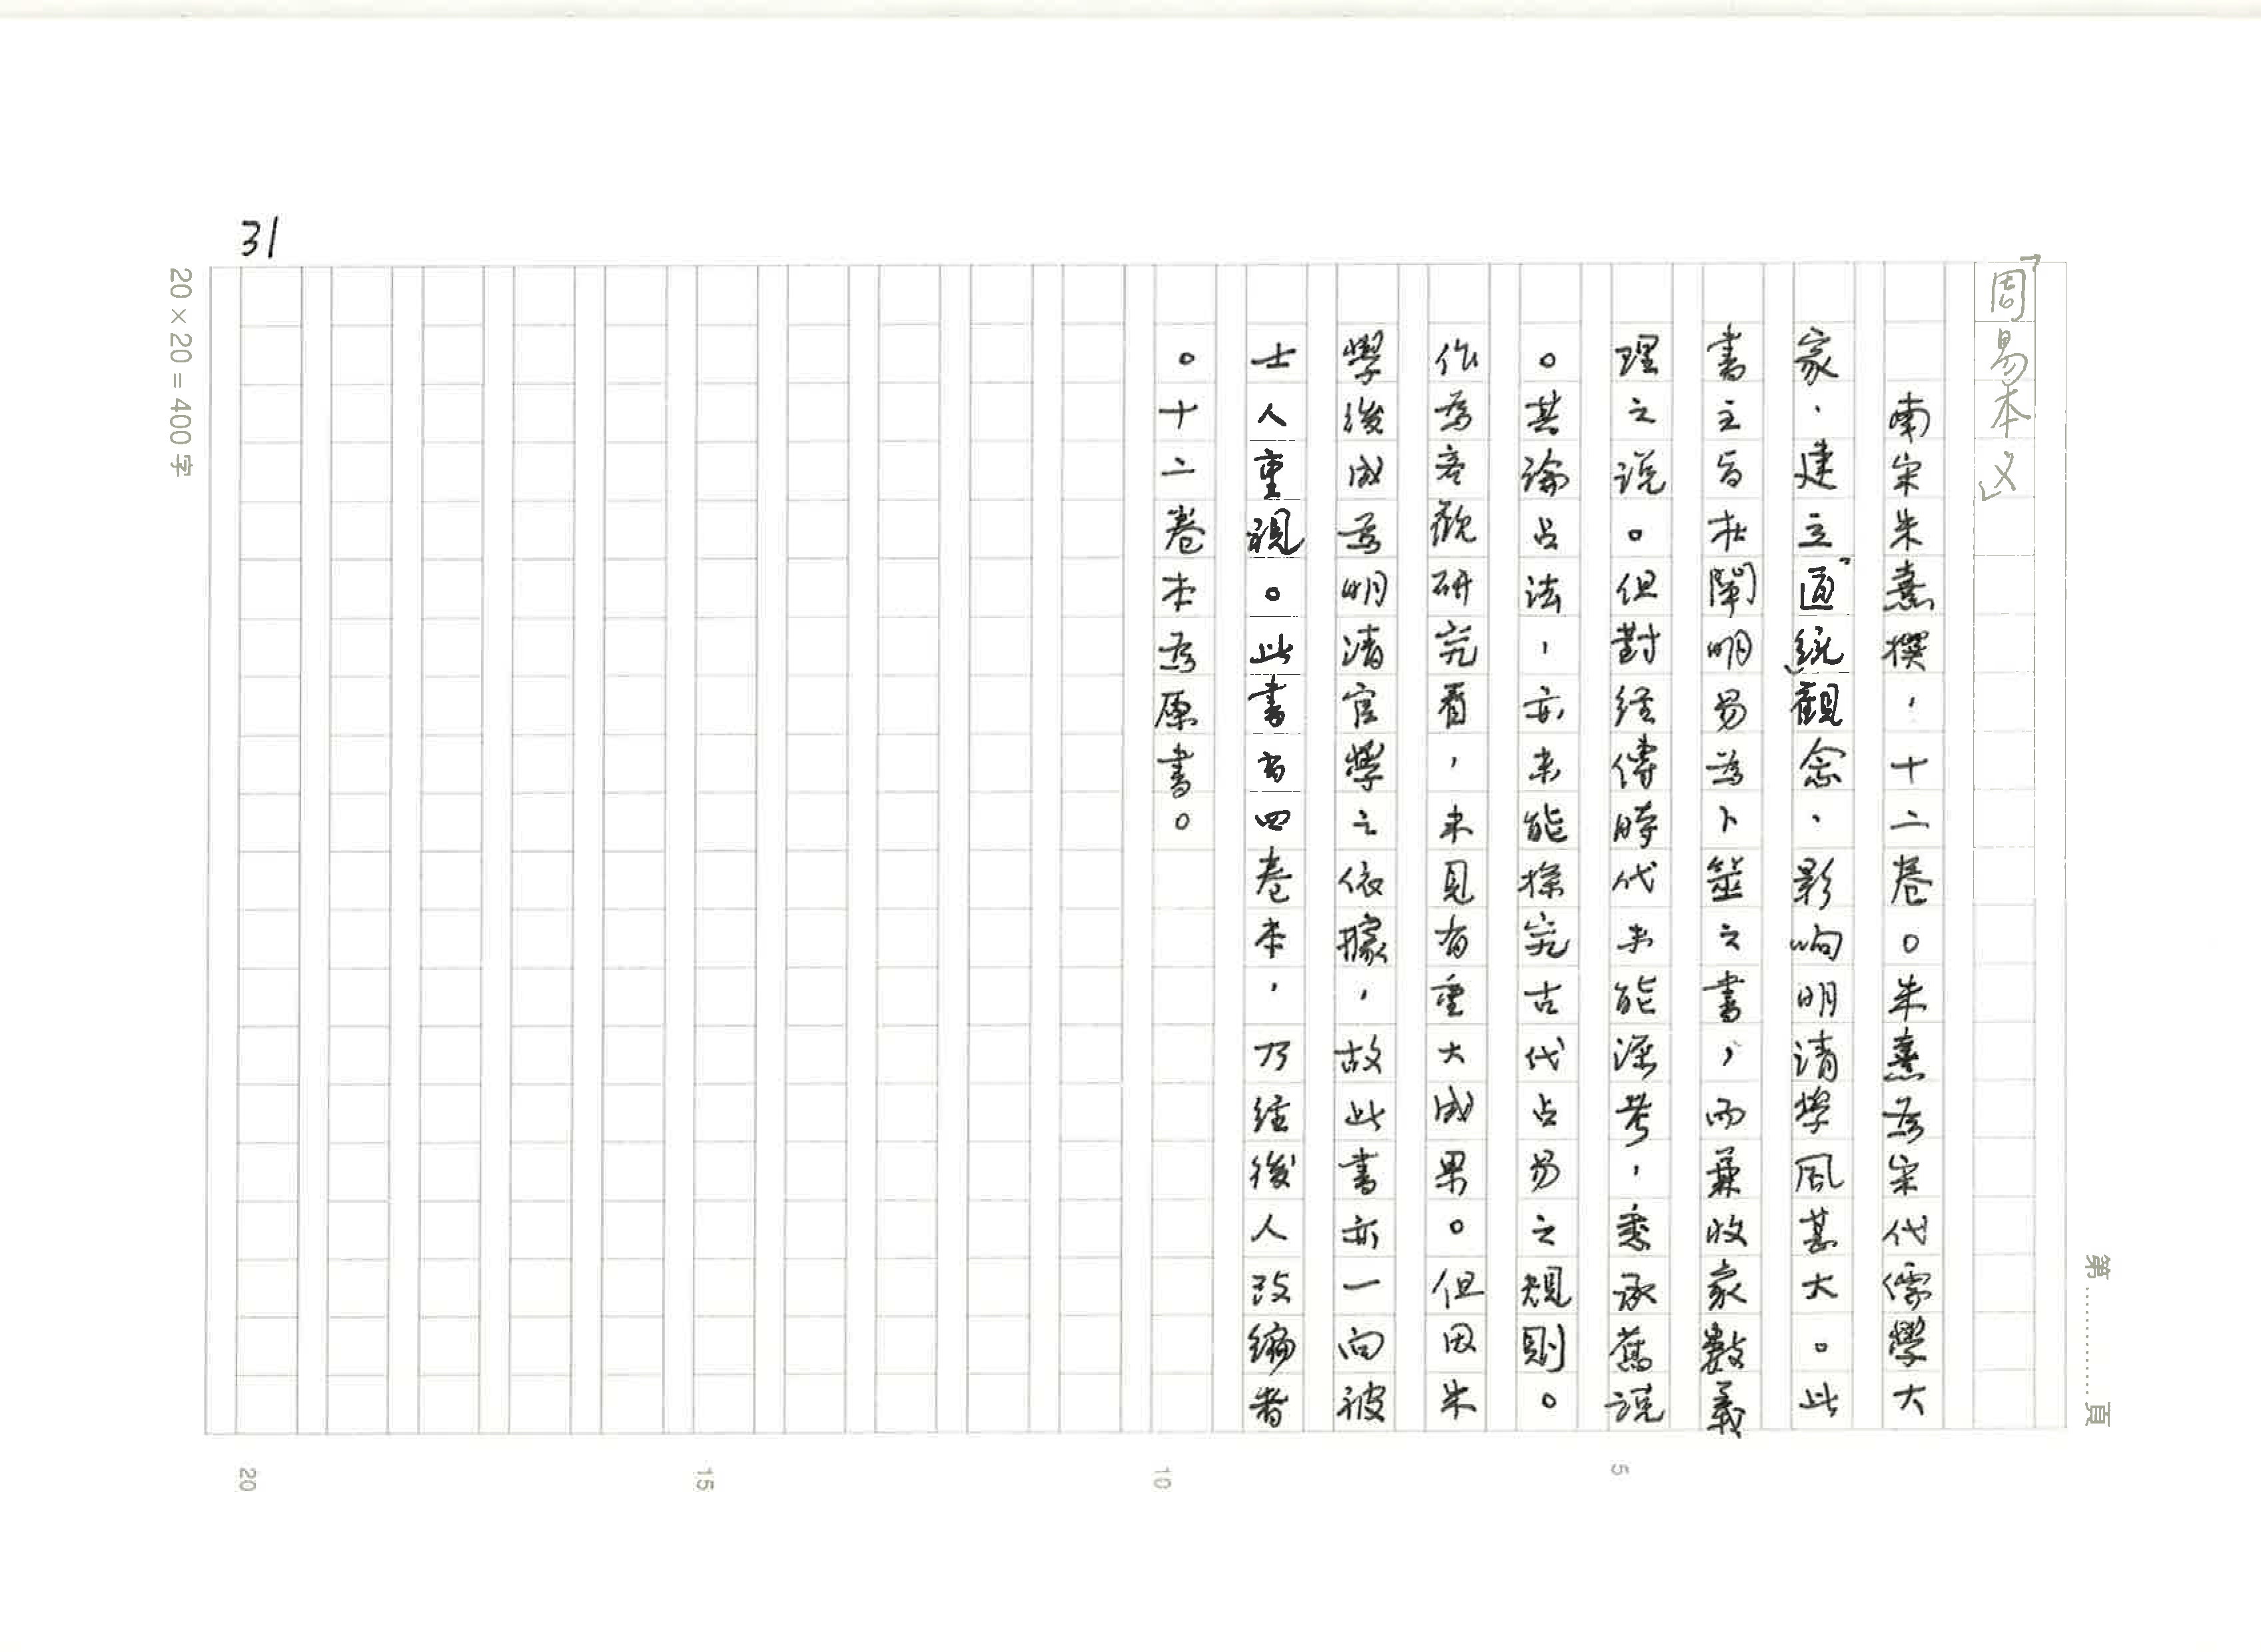 「周易本义」
南宋朱熹撰，十二卷。朱熹為宋代儒學大
家，建立「道統」觀念，影响明清學風甚大。此
書主旨在闡明易為卜筮之書，而兼收家數義
理之説。但對經傳時代未能深考，悉承舊説
。其論占法，亦未能探究古代占易之規則。
作為客觀研究看，未見有重大成果。但因朱
學後成為明清官學之依據，故此書亦一向被
士人重視。此書有四卷本，乃經後人改編者
。十二卷本為原書。
31
20×20=400字
第…………頁
5
10
15
20